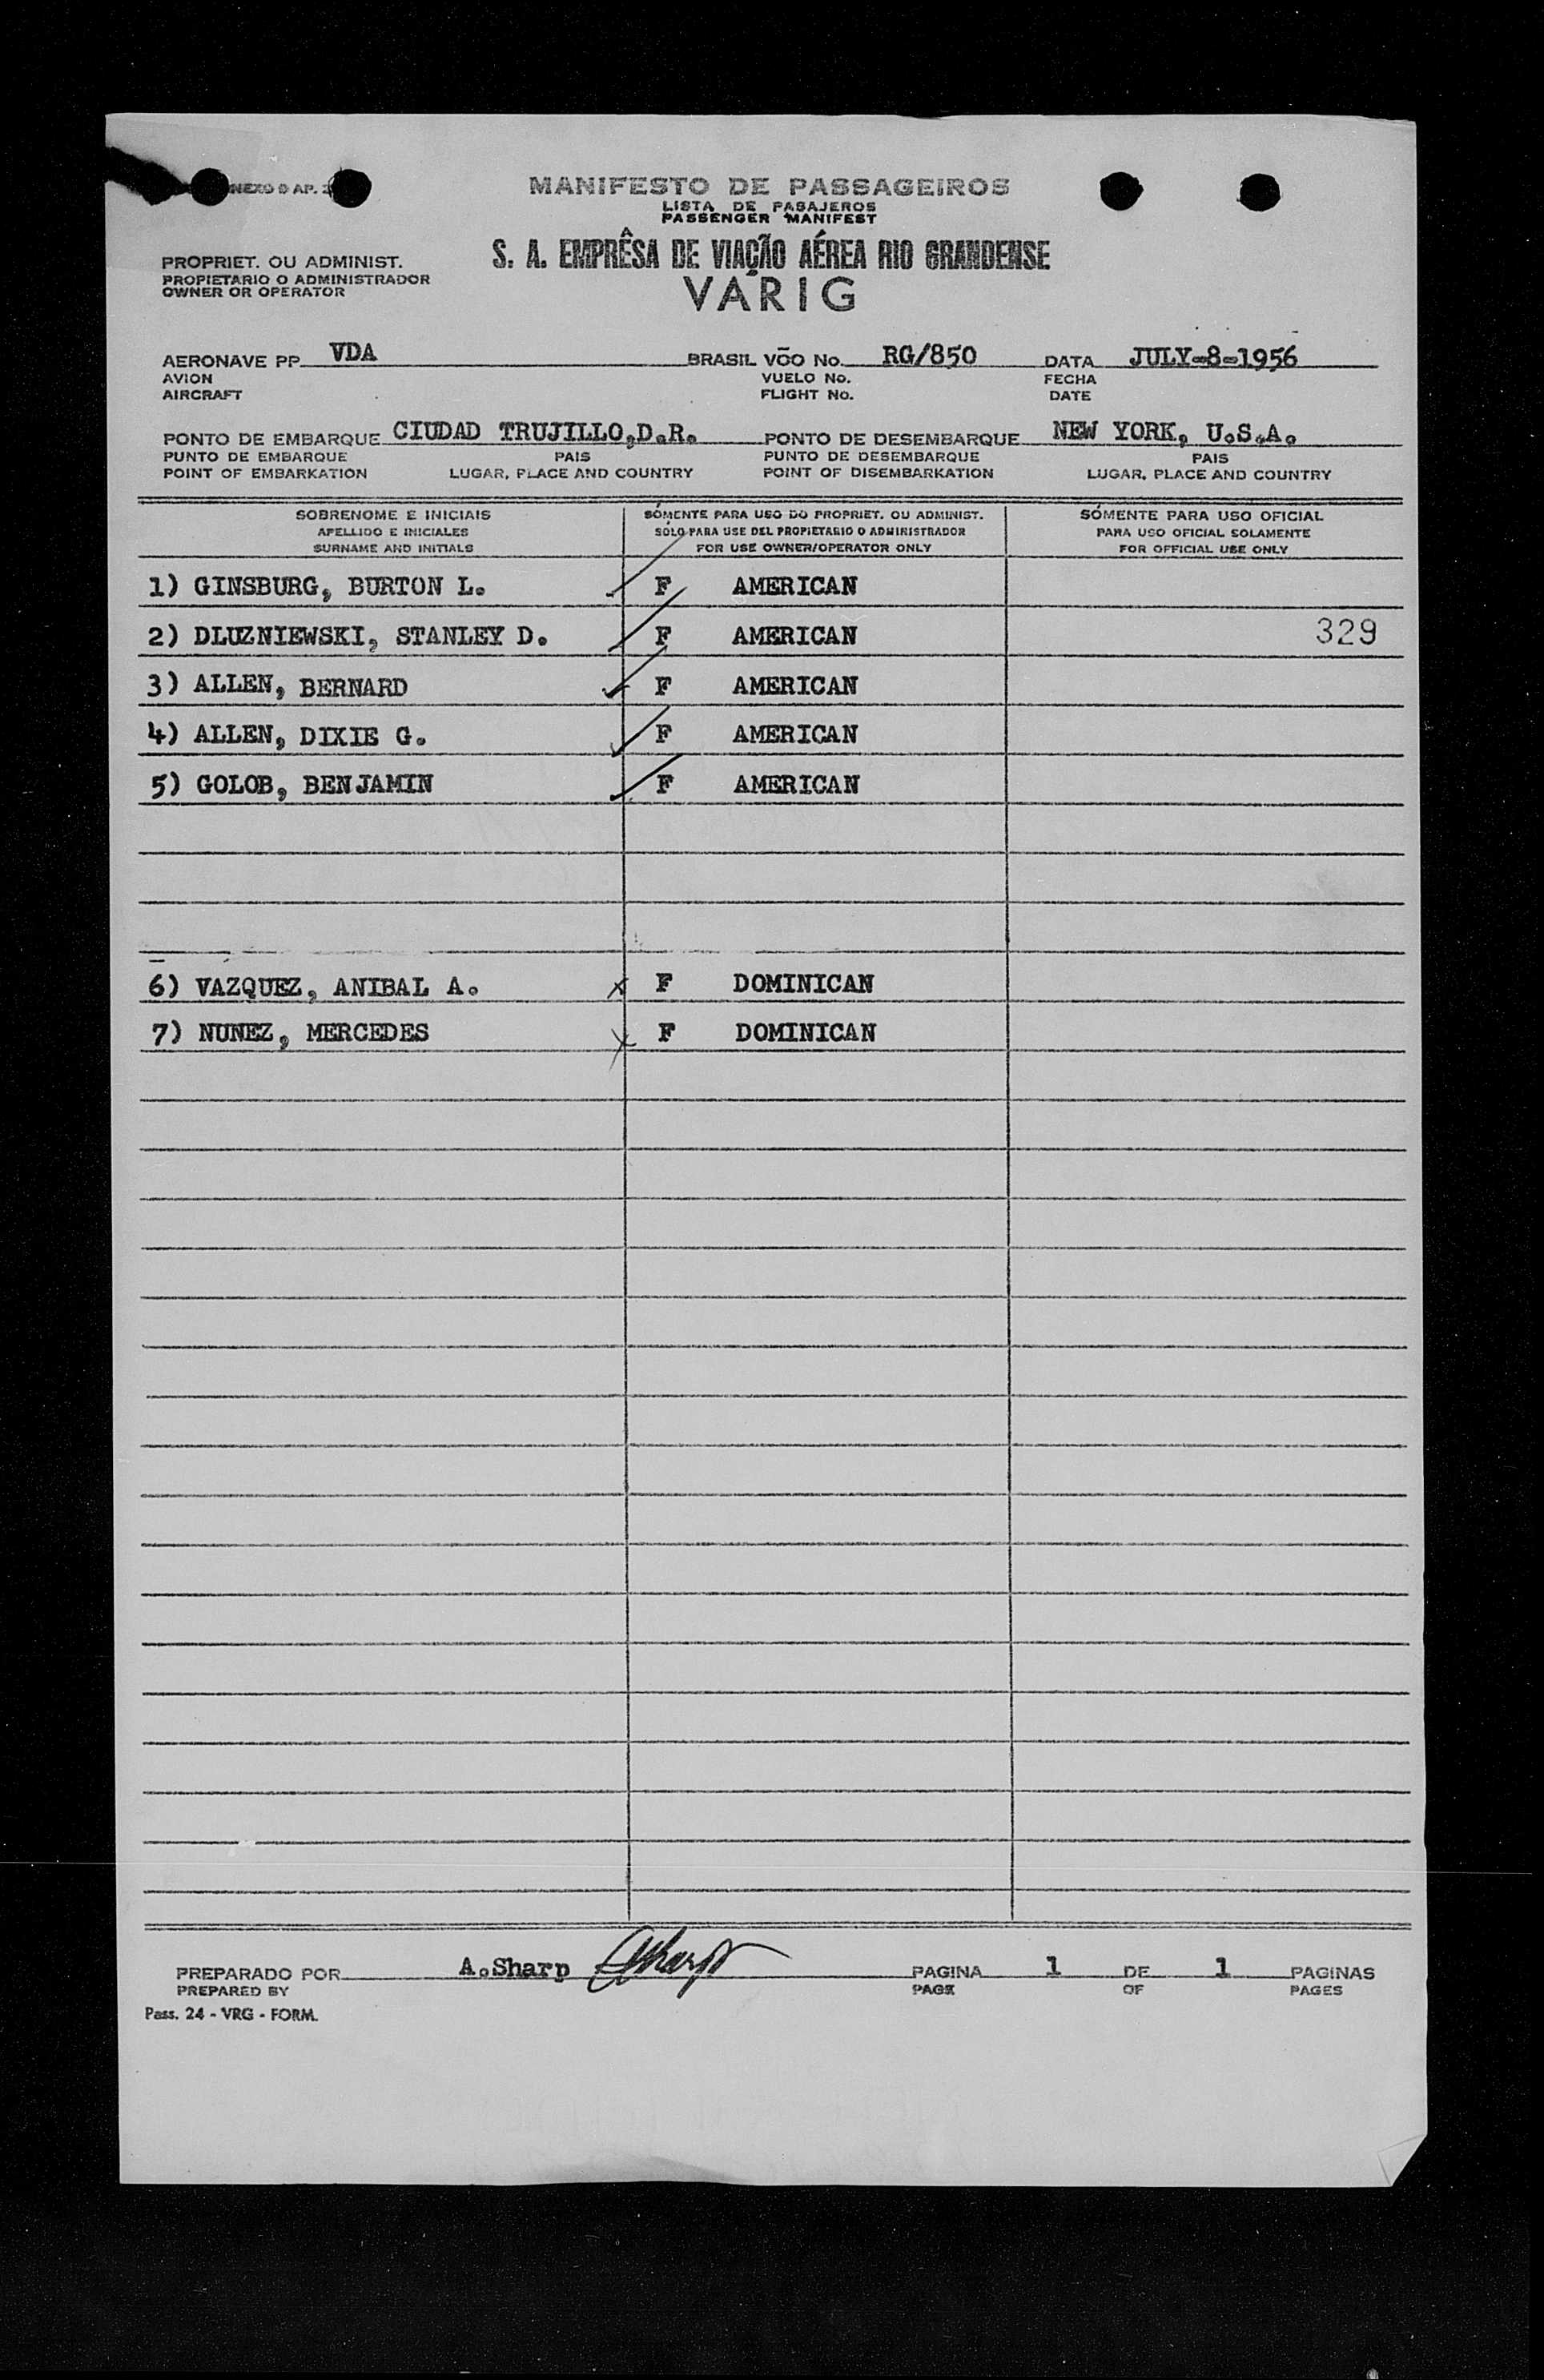 NEXO 9 AP.
MANIFESTO DE PASSAGEIROS
LISTA DE PASAJEROS
PASSENGER MANIFEST
S. A. EMPRÊSA DE VIAÇÃO AÉREA RIO GRANDENSE
VARIG
PROPRIET. OU ADMINIST.
PROPIETARIO O ADMINISTRADOR
OWNER OR OPERATOR
AERONAVE PP VDA BRASIL VÕO No. RG/850 DATA JULY-8-1956
AVION VUELO No. FECHA
AIRCRAFT FLIGHT No. DATE
PONTO DE EMBARQUE CIUDAD TRUJILLO,D.R. PONTO DE DESEMBARQUE NEW YORK, U.S.A.
PUNTO DE EMBARQUE PAIS PUNTO DE DESEMBARQUE PAIS
POINT OF EMBARKATION LUGAR, PLACE AND COUNTRY POINT OF DISEMBARKATION LUGAR, PLACE AND COUNTRY
SOBRENOME E INICIAIS SÓMENTE PARA USO DO PROPRIET. OU ADMINIST. SÓMENTE PARA USO OFICIAL
APELLIDO E INICIALES SÓLO PARA USE DEL PROPIETARIO O ADMINISTRADOR PARA USO OFICIAL SOLAMENTE
SURNAME AND INITIALS FOR USE OWNER/OPERATOR ONLY FOR OFFICIAL USE ONLY
1) GINSBURG, BURTON L. F AMERICAN
2) DLUZNIEWSKI, STANLEY D. F AMERICAN 329
3) ALLEN, BERNARD F AMERICAN
4) ALLEN, DIXIE G. F AMERICAN
5) GOLOB, BENJAMIN F AMERICAN
6) VAZQUEZ, ANIBAL A. x F DOMINICAN
7) NUNEZ, MERCEDES x F DOMINICAN
PREPARADO POR A.Sharp ASharp PAGINA 1 DE 1 PAGINAS
PREPARED BY PAGE OF PAGES
Pass. 24 - VRG - FORM.